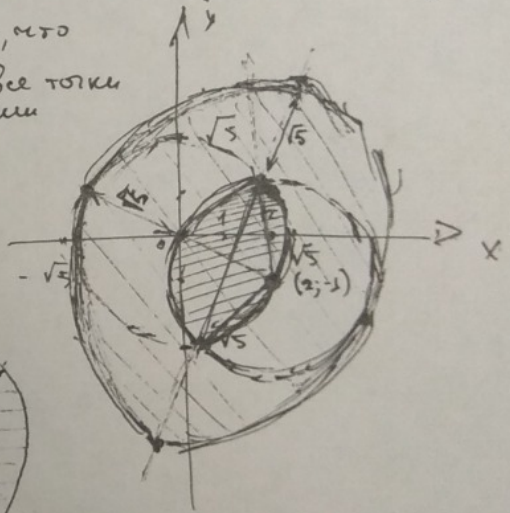 , что
все точки
y
√5
√5
√5
1
2
0
x
-√5
√5
(2;-1)
√5